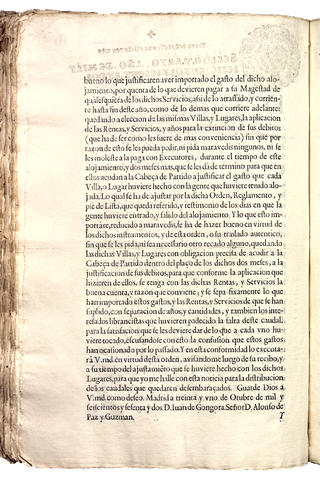 bueno lo que justificaren aver importado el gasto del dicho alo-
jamiento, por quenta de lo que devieren pagar a su Magestad de
qualesquiera de los dichos Servicios, asi de lo atrassado, y corrien-
te hasta fin deste año, como de lo demas que corriere adelante:
quedando a eleccion de las mismas Villas, y Lugares, la aplicacion
de las Rentas, y Servicios, y años para la extincion de sus debitos
(que ha de ser como les fuere de mas conveniencia) sin que por
razon de esto se les pueda pedir, ni pida maravedis ningunos, ni se
les moleste a la paga con Executores, durante el tiempo de este
alojamiento, y dos meses mas, que se les dà de termino para que en
ellos acudan a la Cabeça de Partido a justificar el gasto que cada
Villa, o Lugar huviere hecho con la gente que huviere tenido aloja-
jada. Lo qual se ha de ajustar por la dicha Orden, Reglamento, y
pie de Lista, que queda referido, y testimonio de los dias en que la
gente huviere entrado, y salido del alojamiento. Y lo que esto im-
portare, reducido a maravedis, se ha de hazer bueno en virtud de
los dichos instrumentos, y de esta orden, o su traslado autentico,
sin que se les pida, ni sea necessario otro recado alguno, quedando
las dichas Villas, y Lugares con obligacion precisa de acudir a la
Cabeça de Partido dentro del plaço de los dichos dos meses, a la
justificacion de sus debitos, para que conforme la aplicacion que
hizieren de ellos, se tenga con las dichas Rentas, y Servicios la
buena cuenta, y razon que conviene; y se sepa fixamente lo que
han importado estos gastos, y las Rentas, y Servicios de que se han
suplido, con separacion de años, y cantidades, y tambien los inte-
resados librancistas que huvieren padecido la falta deste caudal,
para la satisfacion que se les deviere dar de lo que a cada vno hu-
viere tocado, escusandose con esto la confusion que estos gastos
han ocasionado por lo passado. Y en esta conformidad lo executa-
rà V.md. en virtud desta orden, avisandome luego de su recibo, y
a su tiempo del ajustamiẽto que se huviere hecho con los dichos
Lugares, para que yo me halle con esta noticia para la distribucion
de los caudales que quedaren desembaraçados. Guarde Dios a
V.md. como deseo. Madrid a treinta y vno de Otubre de mil y
seiscientos y sesenta y dos. D. Iuan de Gongora. Señor D. Alonso de
Paz y Guzman.